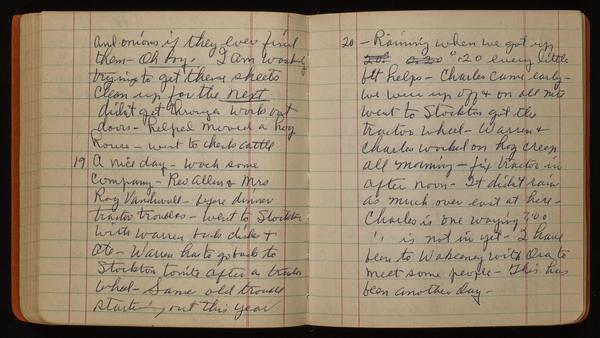 and onions if they ever find
them - Oh boy - I am
trying to get these sheets
clean up for the next
didn't get through work out
doors - helped moved a hog
house - went to check cattle
19 A nice day - wash some
company - Rev Allen & Mrs
Roy - before dinner
tractor troubles - went to Stockton
with Warren disk &
ate - Warren has to go back to
Stockton tonite after a tractor
wheel - Same old trouble
starting out this year
20 - Raining when we got up
20" 0.20 " .20 every little
bit helps - Charles came early -
we were up off & on all nite
went to Stockton got the
tractor wheel - Warren &
Charles worked on hog
all morning - fix tractor in
after noon - It didn't rain
as much over east as here -
Charles is one
" is not in yet - I have
been to Wakeeney with Ora to
meet some people - This has
been another day -